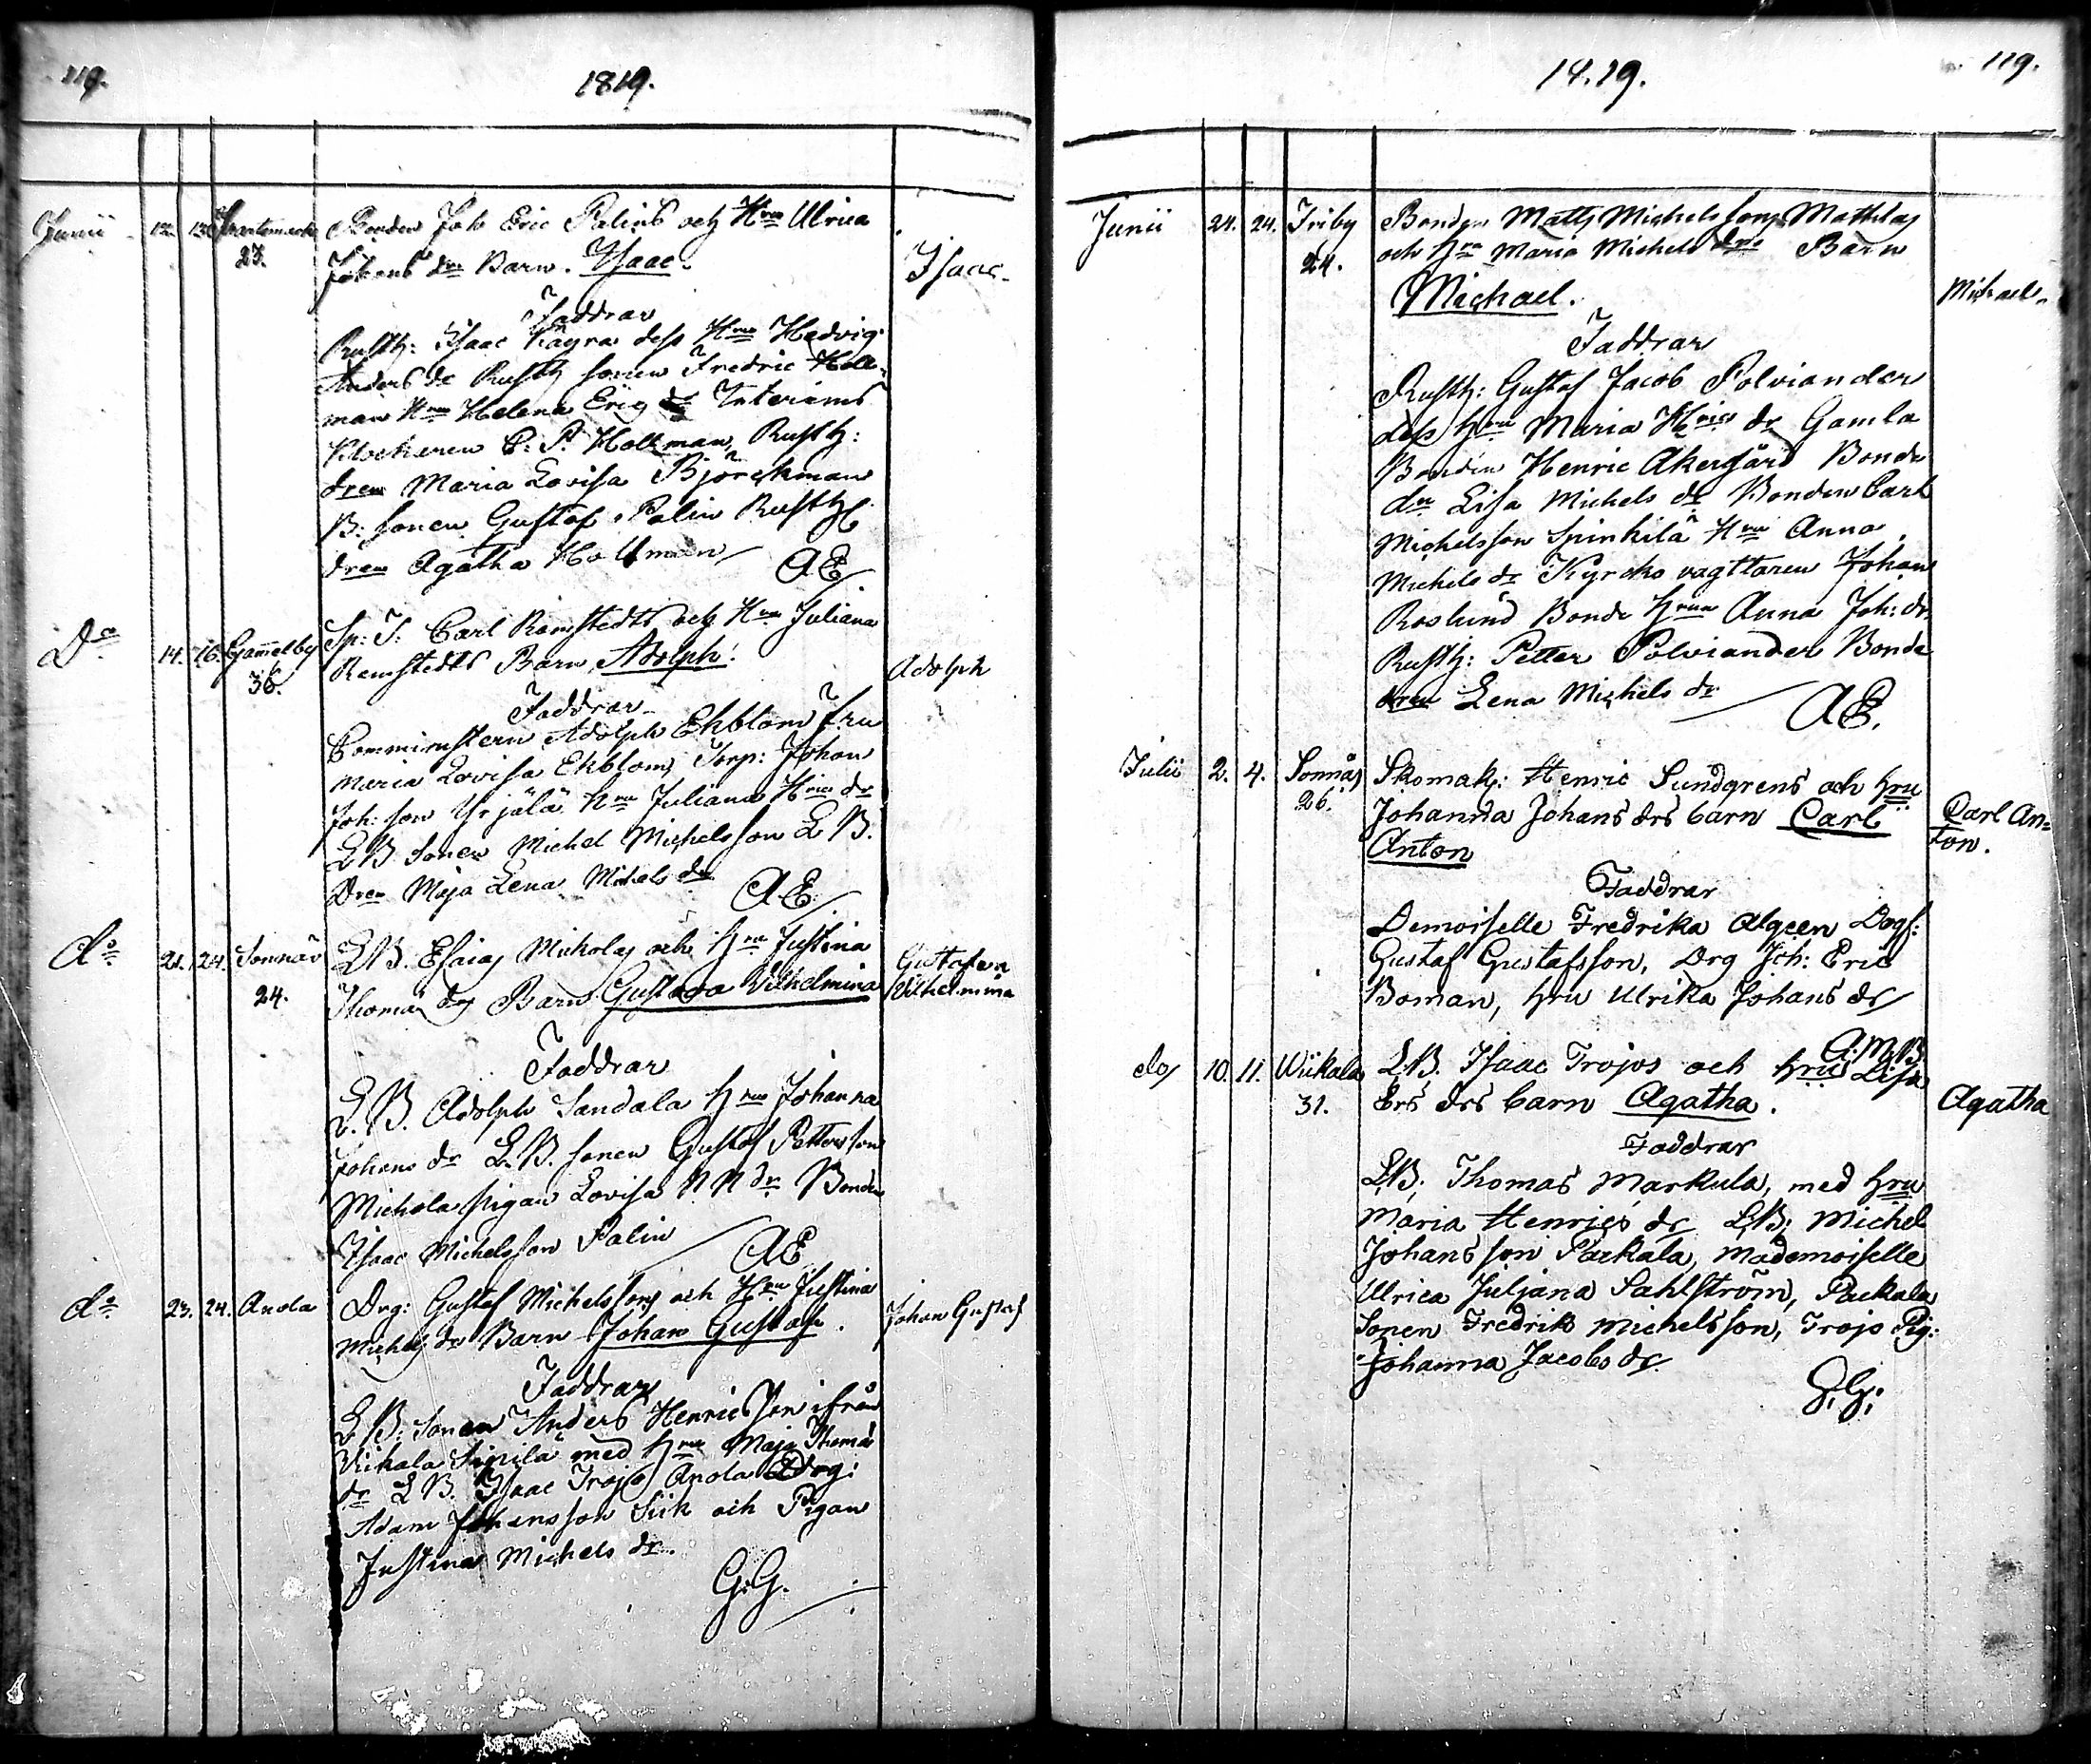 119.
1819.
Junii 12. 13. Svartsmark Bonden Joh Eric Palins och Hru Ulrica
23. Johans dru Barn. Isaac. Isaac
Faddrar
Rusth: Isaac Käyra dess Hru Hedvig
Anders dr Rusth sonen Fredric Holl-
man Hru Helena Eric dr Interims
Klockaren C. P. Hollman, Rusth:
dren Maria Lovisa Björckman
B: sonen Gustaf Palin Rusth
dren Agatha Hollman AE
Do 14. 16. Gammelby Sp: I: Carl Ramstedts och Hru Juliana
36. Ramstedts Barn Adolph. Adolph
Faddrar
Comministern Adolph Ekblom Fru
Maria Lovisa Ekblom, Torp: Johan
Joh: son Yrjälä Hru Juliana Hrics dr
LB Sonen Michel Michelsson LB.
Dren Maja Lena Michels dr AE
do 21. 24. Sonnäs LB. Esaias Mickolas och Hru Justina
24. Thomas drs Barn Gustava Vilhelmina Gustafva Vilhelmina
Faddrar
L.B. Adolph Sandala Hru Johanna
Johans dr L.B. sonen Gustaf Pettersson
Mickola pigan Lovisa NN dr Bonden
Isaac Michelsson Palin AE
do 23. 24. Anola Drg: Gustaf Michelssons och Hru Justina
Michels dr Barn Johan Gustaf. Johan Gustaf
Faddrar
L.B: Sonen Anders Henricsson ifrån
Vickala Sipilä med Hru Maja Thomas
dr LB. Isaac Trojs Anola Drg:
Adam Johansson Siik och Pigan
Justina Michels dr.
G.G.
1819.
119.
Junii 21. 24. Friby Bonden Matts Michelssons Mattilas
24. och Hru Maria Michels drs Barn
Michael. Michael
Faddrar
Rusth: Gustaf Jacob Polviander
dess Hru Maria Hrics dr Gamla
Bonden Henric Åkergård Bonde
dn Lisa Michels dr Bonden Carl
Michelsson Spinkilä Hru Anna
Michels dr Kyrcko vagttaren Johan
Roslund Bonde Hrun Anna Joh: dr.
Rusth: Petter Polviander Bonde
dren Lena Michels dr AE.
Julii 2. 4. Sonnäs Skomak: Henric Sundgrens och Hru
26. Johanna Johans drs barn Carl Carl An=
Anton ton.
Faddrar
Demoiselle Fredrika Algeen Drgs:
Gustaf Gustafsson, Drg Joh: Eric
Boman, Hru Ulrika Johans dr
A.M.B.
do 10. 11. Wiikala LB. Isaac Trojos och Hru Lisa
31. Ers drs barn Agatha. Agatha
Faddrar
LB: Thomas Markula, med Hru
Maria Henrics dr LB: Michel
Johansson Packala, Mademoiselle
Ulrica Juljana Sahlström, Packala
Sonen Fredrik Michelsson, Trojo Pig:
Johanna Jacobs dr
G.G: